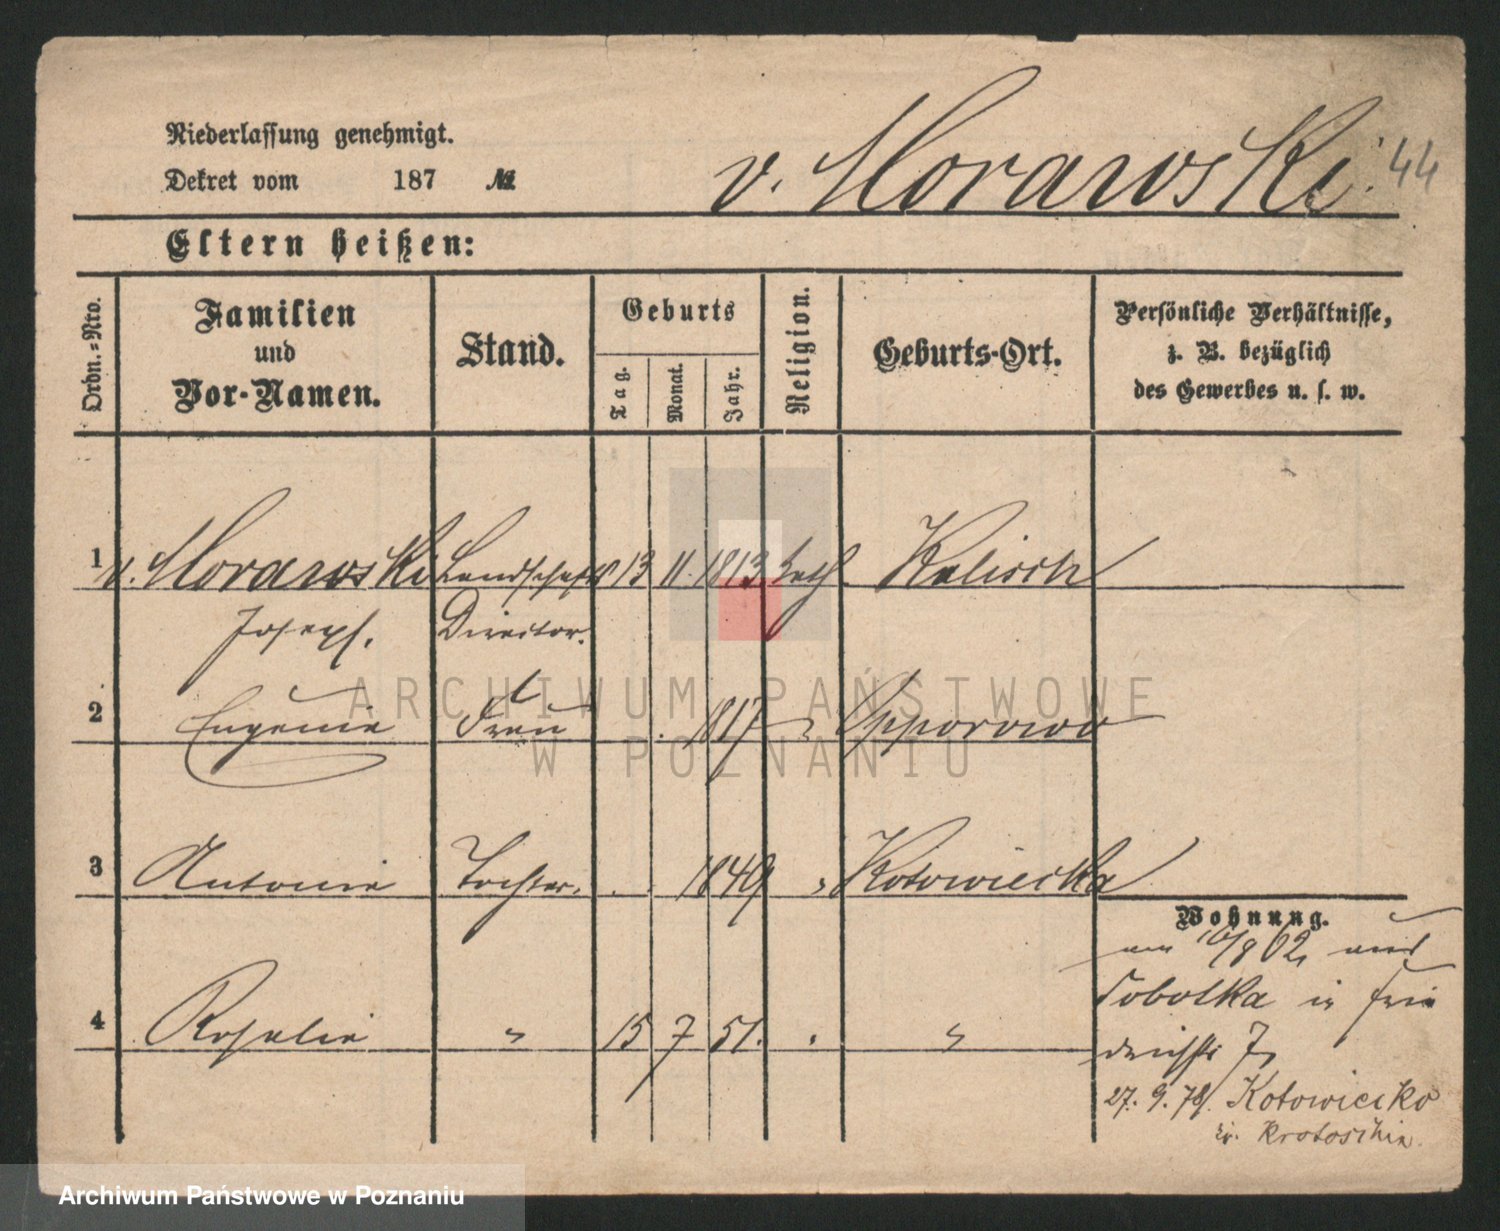 Niederlassung genehmigt.
Dekret vom 187 №
v. Morawski. 44
Eltern heißen:
Ordn.-Nro.
Familien und Vor-Namen.
Stand.
Geburts
Tag. Monat. Jahr.
Religion.
Geburts-Ort.
Persönliche Verhältnisse,
z. B. bezüglich
des Gewerbes u. s. w.
1 v. Morawski Landschafts 13 11. 1813 kath Kalisch
Joseph. Director.
2 Eugenie Frau 1817 " Opporowo
3 Antonie Tochter. 1849 " Kotowiecka
Wohnung.
4 Rosalie " 15 7 51. "
Sobolka in Frie
drichstr 7,
27. 9. 78. Kotowiecko
Kr. Krotoschin.
ARCHIWUM PAŃSTWOWE
W POZNANIU
Archiwum Państwowe w Poznaniu